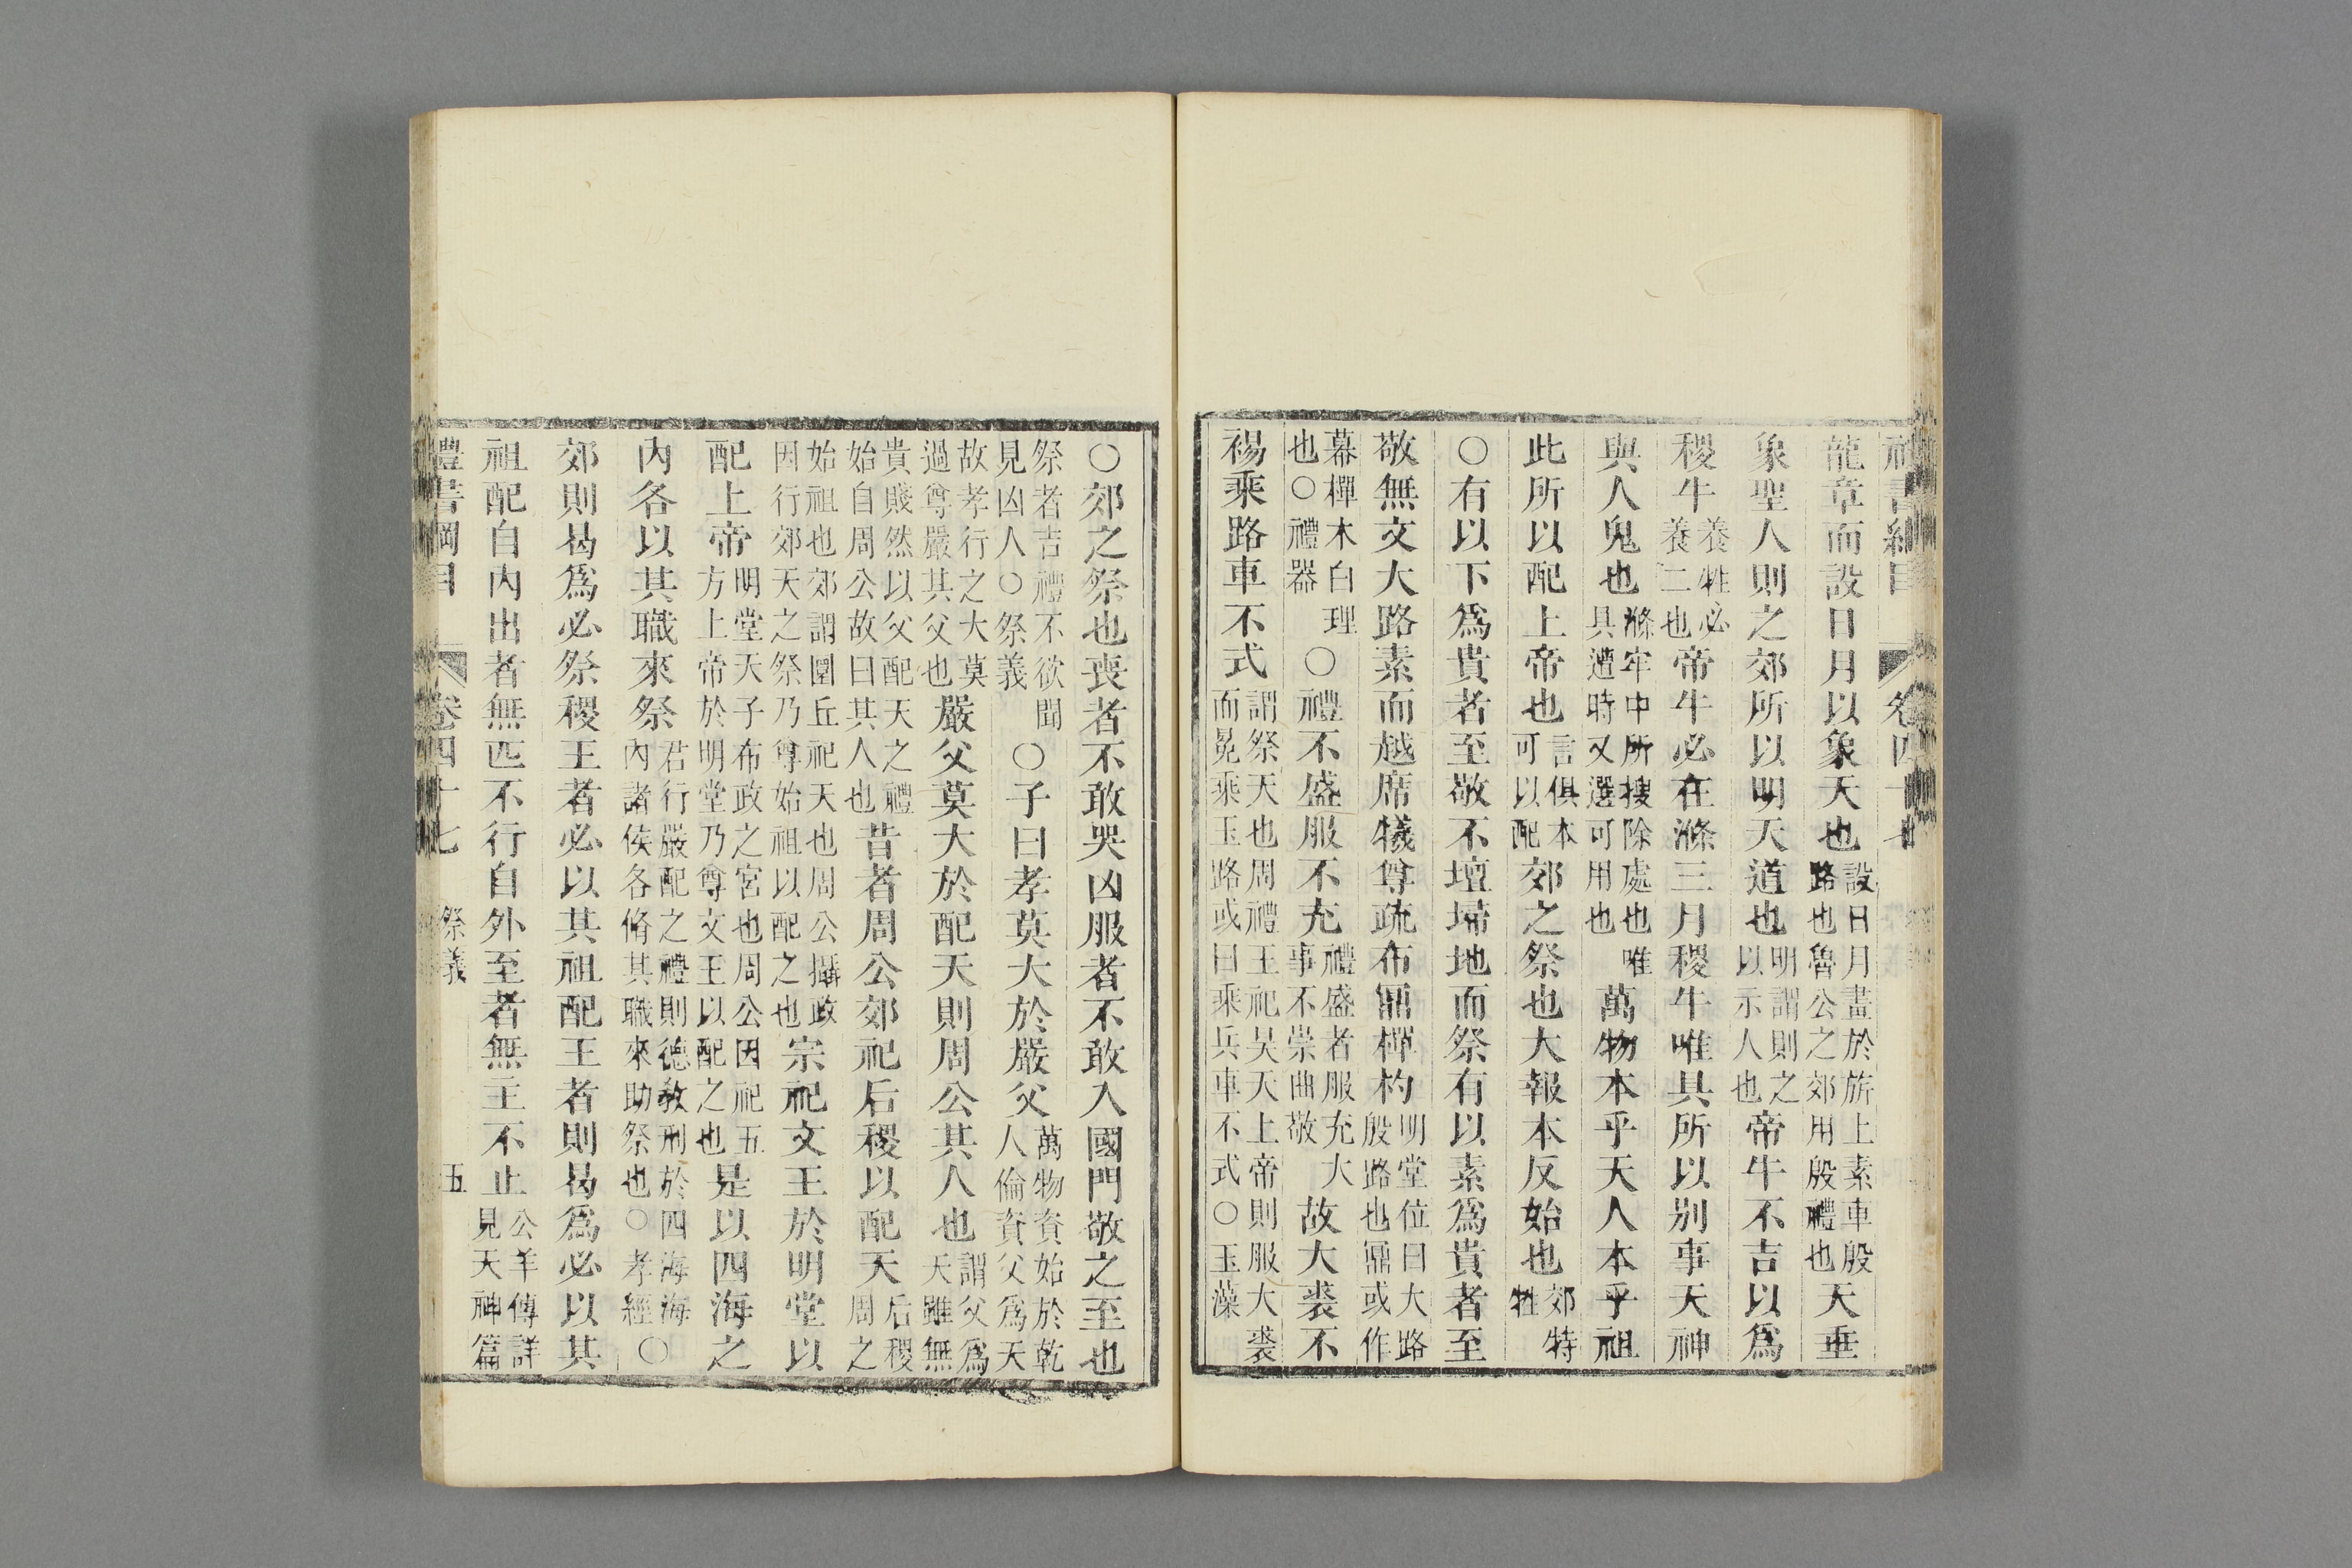 龍章而設日月以象天也設日月畫於旂上素車殷路也魯公之郊用殷禮也天垂
象聖人則之郊所以明天道也明謂則之以示人也帝牛不吉以爲
稷牛養牲必養二也帝牛必在滌三月稷牛唯具所以別事天神
與人鬼也滌牢中所搜除處也唯具遭時又選可用也萬物本乎天人本乎祖
此所以配上帝也言俱本可以配郊之祭也大報本反始也郊特牲
○有以下爲貴者至敬不壇埽地而祭有以素爲貴者至
敬無文大路素而越席犧尊疏布鼏樿杓明堂位曰大路殷路也鼏或作
幕樿木白理也○禮器○禮不盛服不充禮盛者服充大事不崇曲敬故大裘不
裼乘路車不式謂祭天也周禮王祀昊天上帝則服大裘而冕乘玉路或曰乘兵車不式○玉藻
○郊之祭也喪者不敢哭凶服者不敢入國門敬之至也
祭者吉禮不欲聞見凶人○祭義○子曰孝莫大於嚴父萬物資始於乾人倫資父爲天
故孝行之大莫過尊嚴其父也嚴父莫大於配天則周公其人也謂父爲天雖無
貴賤然以父配天之禮始自周公故曰其人也昔者周公郊祀后稷以配天后稷周之
始祖也郊謂圜丘祀天也周公攝政因行郊天之祭乃尊始祖以配之也宗祀文王於明堂以
配上帝明堂天子布政之宮也周公因祀五方上帝於明堂乃尊文王以配之也是以四海之
內各以其職來祭君行嚴配之禮則德教刑於四海海內諸侯各脩其職來助祭也○孝經○
郊則曷爲必祭稷王者必以其祖配王者則曷爲必以其
祖配自內出者無匹不行自外至者無主不止公羊傳詳見天神篇
禮書綱目　卷四十七　祭義　五